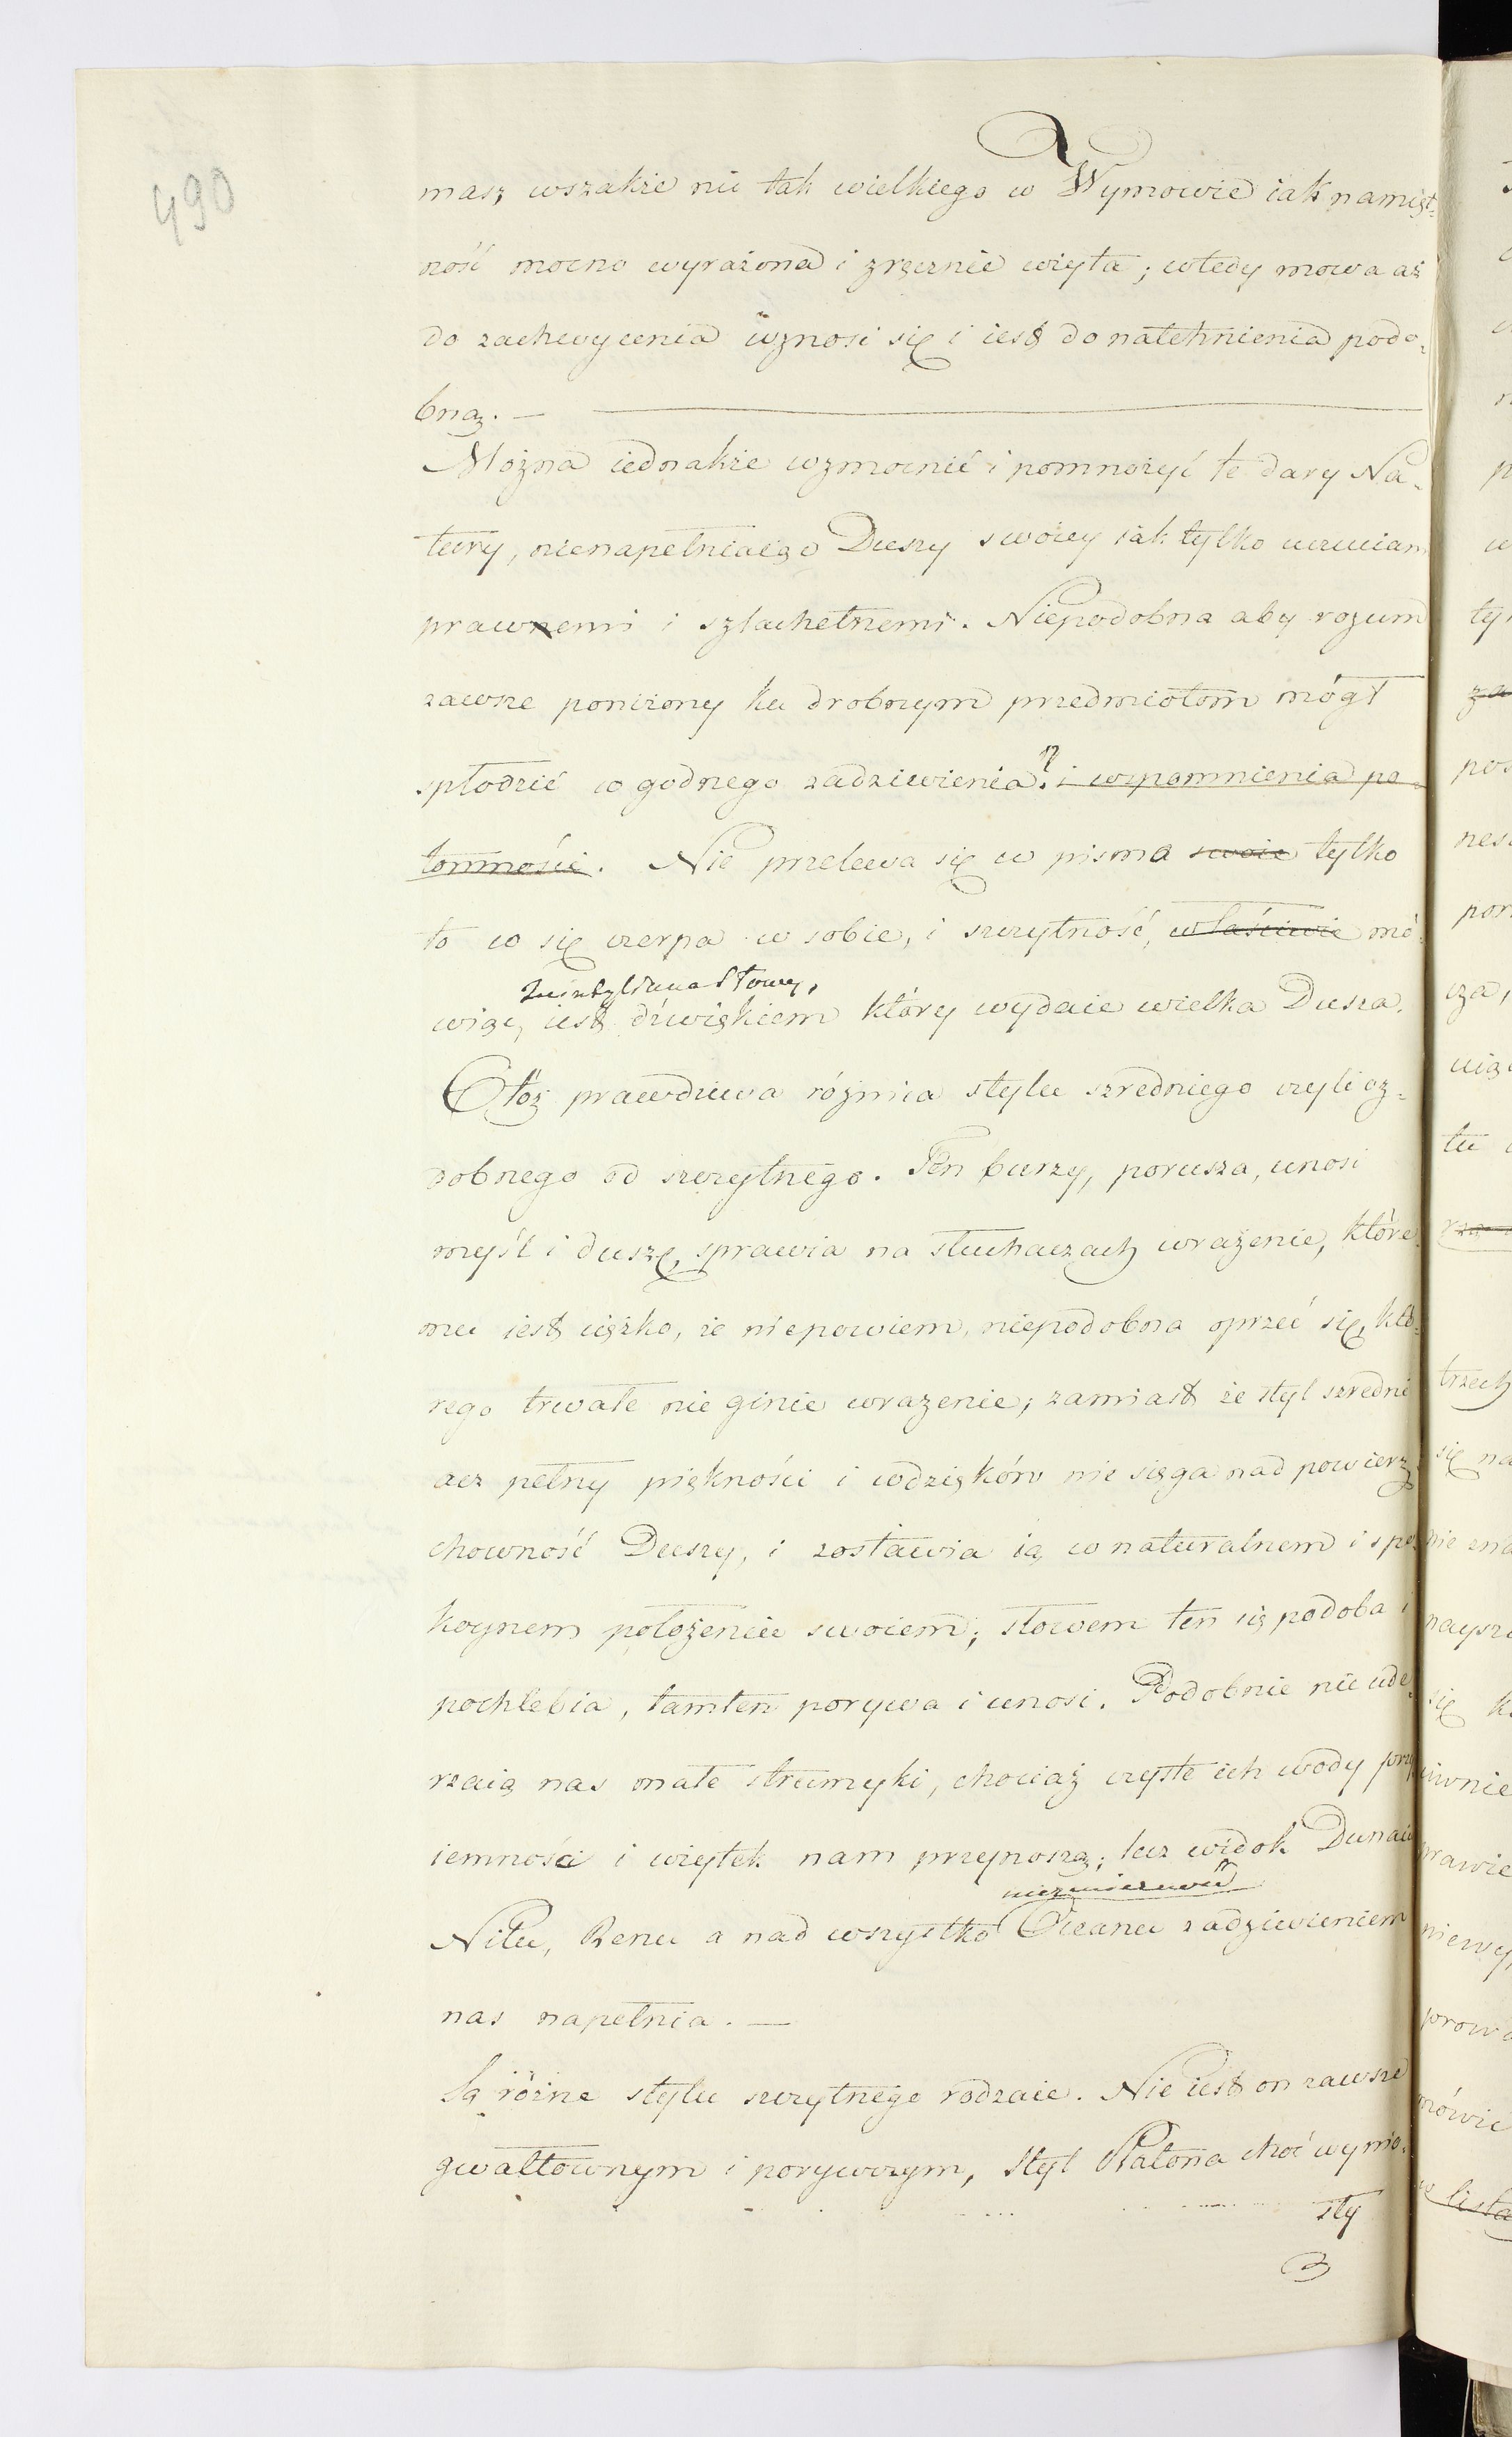 490
masz wszakże nic tak wielkiego w Wymowie iak namięt-
ność mocno wyrażona i zręcznie wzięta; wtedy mowa aż
do zachwycenia wznosi się i iest do natchnienia podo-
bną. —
Można iednakże wzmocnić i pomnożyć te dary Na-
tury, nienapełniaiąc Duszy swoiey iak tylko uczuciam
prawnemi i szlachetnemi. Niepodobna aby rozum
zawsze poniżony ku drobnym przedmiotom mógł
spłodzić co godnego zadziwienia. i wspomnienia po-
tomności. Nie przelewa się w pisma swoie tylko
to co się czerpa w sobie, i szczytność, właściwie mó-
wiąc, iest dźwiękiem który wydaie wielka Dusza.
Otóż prawdziwa różnica stylu szredniego czyli oz-
dobnego od szczytnego. Ten burzy, porusza, unosi
myśl i duszę, sprawia na słuchaczach wrażenie, które-
mu iest ciężko, że niepowiem, niepodobna oprzeć się, któ-
rego trwałe nie ginie wrażenie; zamiast że styl szredni
acz pełny piękności i wdzięków nie sięga nad powierz-
chowność Duszy, i zostawia ią w naturalnem i spo-
koynem położeniu swoiem; słowem ten się podoba i
pochlebia, tamten porywa i unosi. Podobnie nie ude-
rzaią nas małe strumyki, chociaż czyste ich wody przy
iemność i użytek nam przynoszą; lecz widok Dunaiu
niezmierzonego
Nilu, Renu a nad wszystko Oceanu zadziwieniem
nas napełnia. —
Są różne stylu szczytnego rodzaie. Nie iest on zawsze
gwałtownym i porywczym, Styl Platona choć wynio-
sły